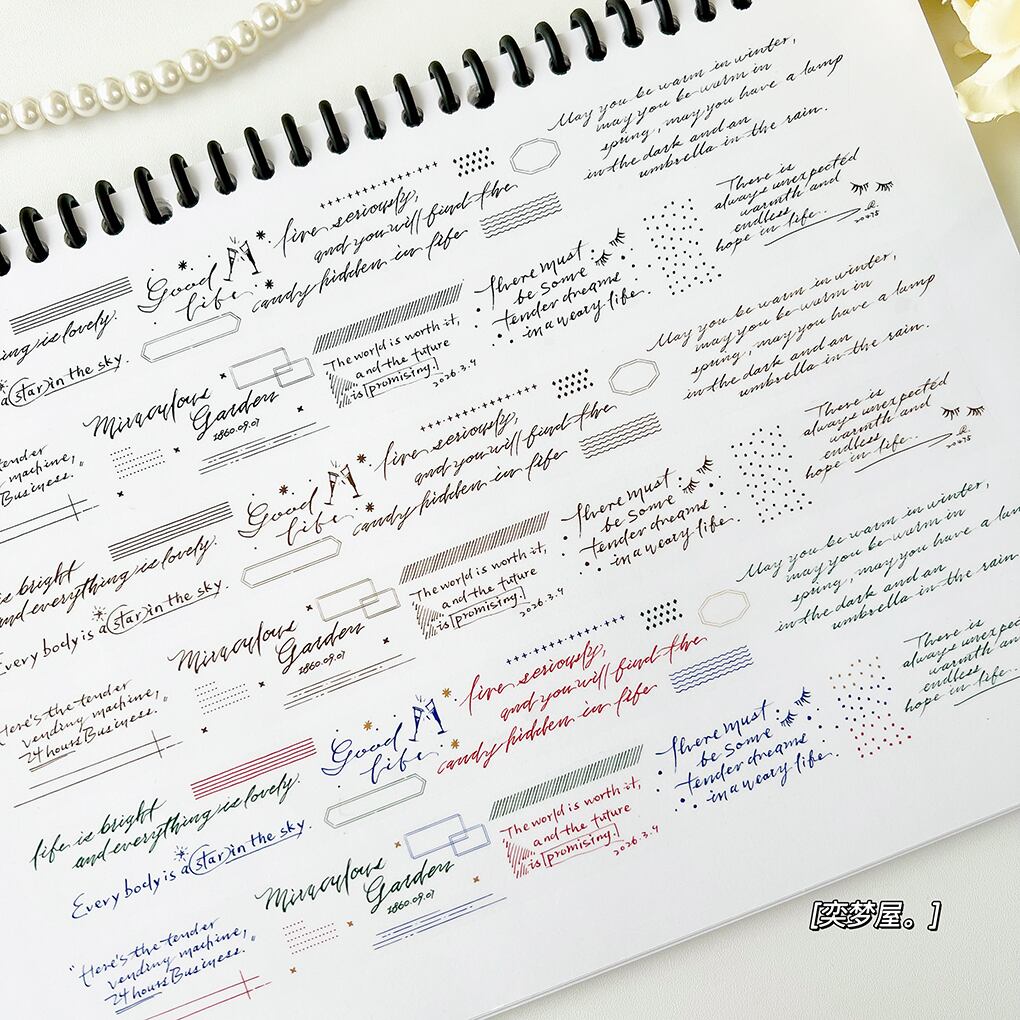 May you be warm in winter,
may you be warm in
spring, may you have a lamp
in the dark and an
umbrella in the rain.
There is
always unexpected
warmth and
endless
hope in life..
live seriously,
and you will find the
candy hidden in life
Good
life.
There must
be some
tender dreams
in a weary life.
ing is lovely.
a star in the sky.
The world is worth it,
and the future
is promising.
2026.3.9
Miraculous
Garden
1860.09.07
tender
machine,
Business."
May you be warm in winter,
may you be warm in
spring, may you have a lamp
in the dark and an
umbrella in the rain.
There is
always unexpected
warmth and
endless
hope in life..
live seriously,
and you will find the
candy hidden in life
Good
life.
There must
be some
tender dreams
in a weary life.
is bright
and everything is lovely.
Every body is a star in the sky.
The world is worth it,
and the future
is promising.
2026.3.9
Miraculous
Garden
1860.09.07
Here's the tender
vending machine,
24 hours Business."
May you be warm in winter,
may you be warm in
spring, may you have a
in the dark and an
umbrella in the rain.
There is
always
warmth and
endless
hope in life..
live seriously,
and you will find the
candy hidden in life
Good
life.
There must
be some
tender dreams
in a weary life.
life is bright
and everything is lovely.
Every body is a star in the sky.
The world is worth it,
and the future
is promising.
2026.3.9
Miraculous
Garden
1860.09.07
"Here's the tender
vending machine,
24 hours Business."
[奕梦屋。]